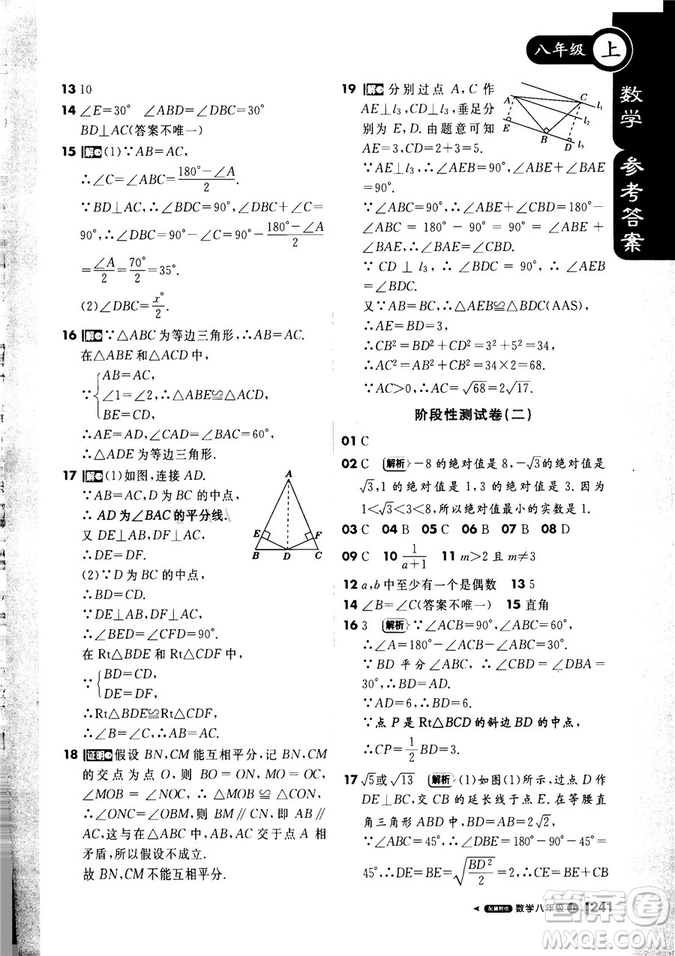 八年级 上
数学 参考答案
13 10
14 ∠E=30° ∠ABD=∠DBC=30°
BD⊥AC(答案不唯一)
15 解 (1)∵AB=AC,
∴∠C=∠ABC=(180°-∠A)/2.
∵BD⊥AC,∴∠BDC=90°,∠DBC+∠C=
90°,∴∠DBC=90°-∠C=90°-(180°-∠A)/2
=∠A/2=70°/2=35°.
(2)∠DBC=x°/2.
16 解 ∵△ABC为等边三角形,∴AB=AC.
在△ABE和△ACD中,
∵{AB=AC,
∠1=∠2,∴△ABE≌△ACD,
BE=CD,
∴AE=AD,∠CAD=∠BAE=60°,
∴△ADE是等边三角形.
17 解 (1)如图,连接AD.
∵AB=AC,D是BC的中点,
∴AD为∠BAC的平分线.
又∵DE⊥AB,DF⊥AC,
∴DE=DF.
(2)∵D为BC的中点,
∴BD=CD.
∵DE⊥AB,DF⊥AC,
∴∠BED=∠CFD=90°.
在Rt△BDE和Rt△CDF中,
∵{BD=CD,
DE=DF,
∴Rt△BDE≌Rt△CDF,
∴∠B=∠C,∴AB=AC.
A
E F
B D C
18 证明 假设BN,CM能互相平分,记BN,CM
的交点为点O,则BO=ON,MO=OC.又
∠MOB=∠NOC,∴△MOB≌△CON,
∴∠ONC=∠OBM,∴BM∥CN,即AB∥
AC,这与在△ABC中,AB,AC交于点A相
矛盾,所以假设不成立.
故BN,CM不能互相平分.
19 解 分别过点A,C作
AE⊥l₃,CD⊥l₃,垂足分
别为E,D.由题意可知
AE=3,CD=2+3=5.
A C l₁
l₂
E B D l₃
∵AE⊥l₃,∴∠AEB=90°,
∴∠ABE+∠BAE=90°.
又∵∠ABC=90°,∴∠ABE+∠CBD=
90°,∴∠BAE=∠CBD.
∵CD⊥l₃,∴∠BDC=90°=∠AEB
又∵AB=BC,
∴△ABE≌△BCD(AAS),
∴AE=BD=3,
∴CB²=BD²+CD²=3²+5²=34,
∴AC²=AB²+CB²=34×2=68.
∵AC>0,∴AC=√68=2√17.
阶段性测试卷(二)
01 C
02 C 解析 -8的绝对值是8,-√3的绝对值是
√3,1的绝对值是1,3的绝对值是3.因为
1<√3<3<8,所以绝对值最小的实数是1.
03 C 04 B 05 C 06 B 07 B 08 D
09 C 10 1/(a+1) 11 m>2且m≠3
12 a,b中至少有一个是偶数 13 5
14 ∠B=∠C(答案不唯一) 15 直角
16 3 解析 ∵∠ACB=90°,∠ABC=60°,
∴∠A=180°-∠ACB-∠ABC=30°.
∵BD平分∠ABC,∴∠CBD=∠DBA=
30°,∴BD=AD.
∵AD=6,∴BD=6.
∵点P是Rt△BCD的斜边BD的中点,
∴CP=1/2BD=3.
17 √5或√13 解析 (1)如图(1)所示,过点D作
DE⊥BC,与BC的延长线于点E.在等腰直
角三角形ABD中,AB=BD=2√2,
∵∠ABC=45°,∴∠DBE=90°-45°=45°,
∴△BED为等腰直角三角形,
∴BE=DE=√(BD²/2)=2,∴CE=BE+CB
数学八年级 上 241
答案圈
MXQE.COM